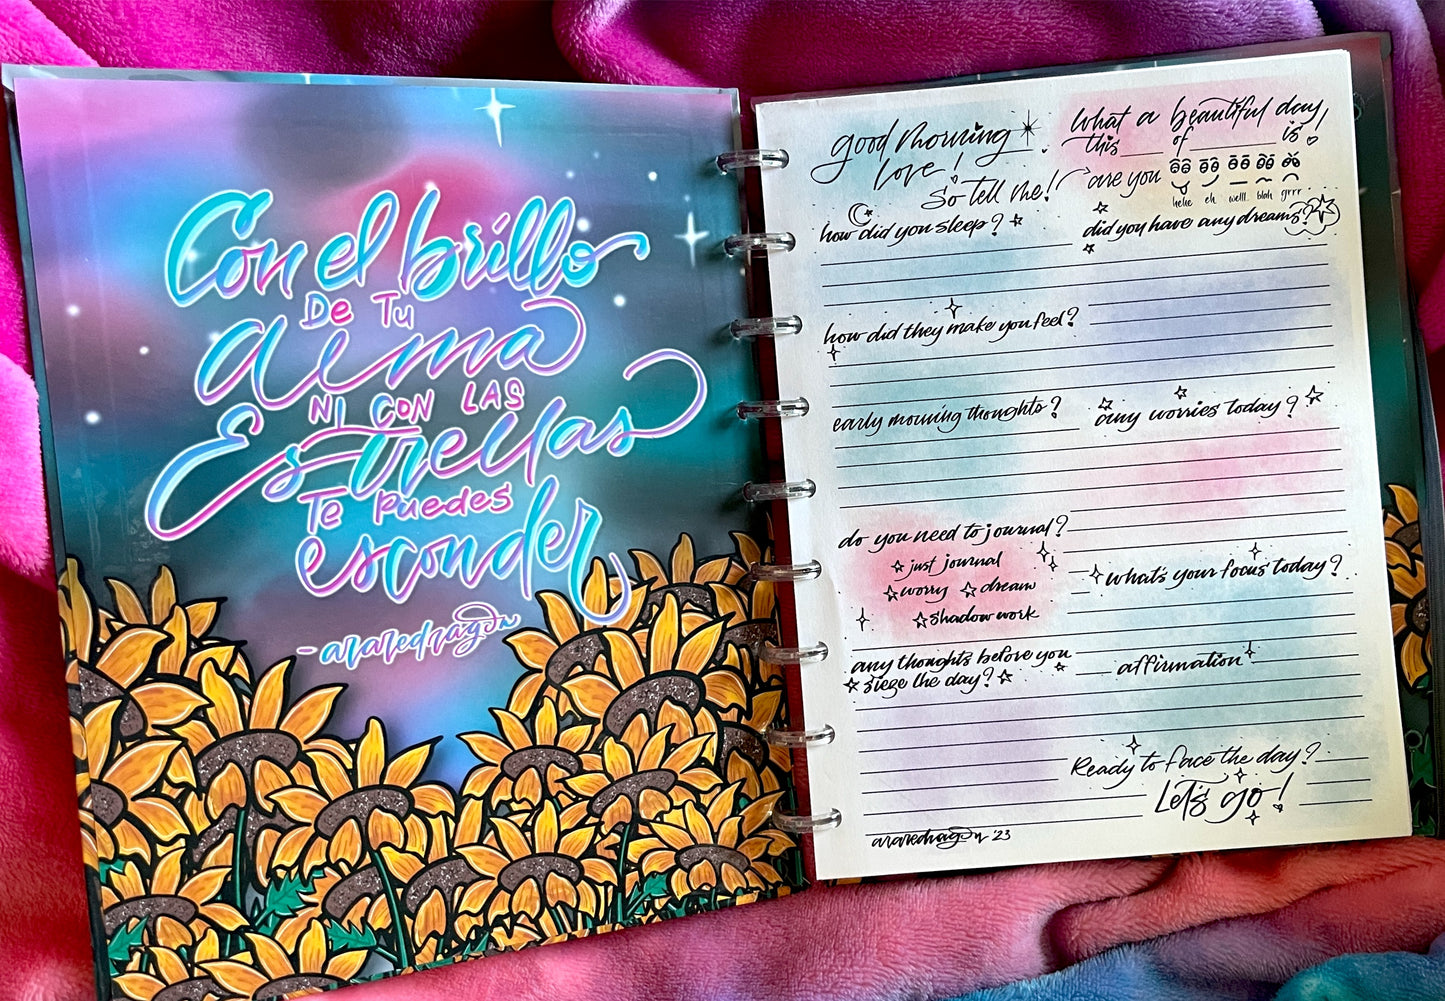 Con el brillo
De Tu
alma
Ni con las
Estrellas
Te Puedes
esconder
- araredragon
good morning
love!
So tell me!
What a beautiful day
this ____ of ________ is!
are you
hehe eh welll blah grrr
how did you sleep?
did you have any dreams?
how did they make you feel?
early morning thoughts?
any worries today?
do you need to journal?
just journal
worry dream
shadow work
what's your focus today?
any thoughts before you
sieze the day?
affirmation
Ready to face the day?
Let's go!
araredragon '23